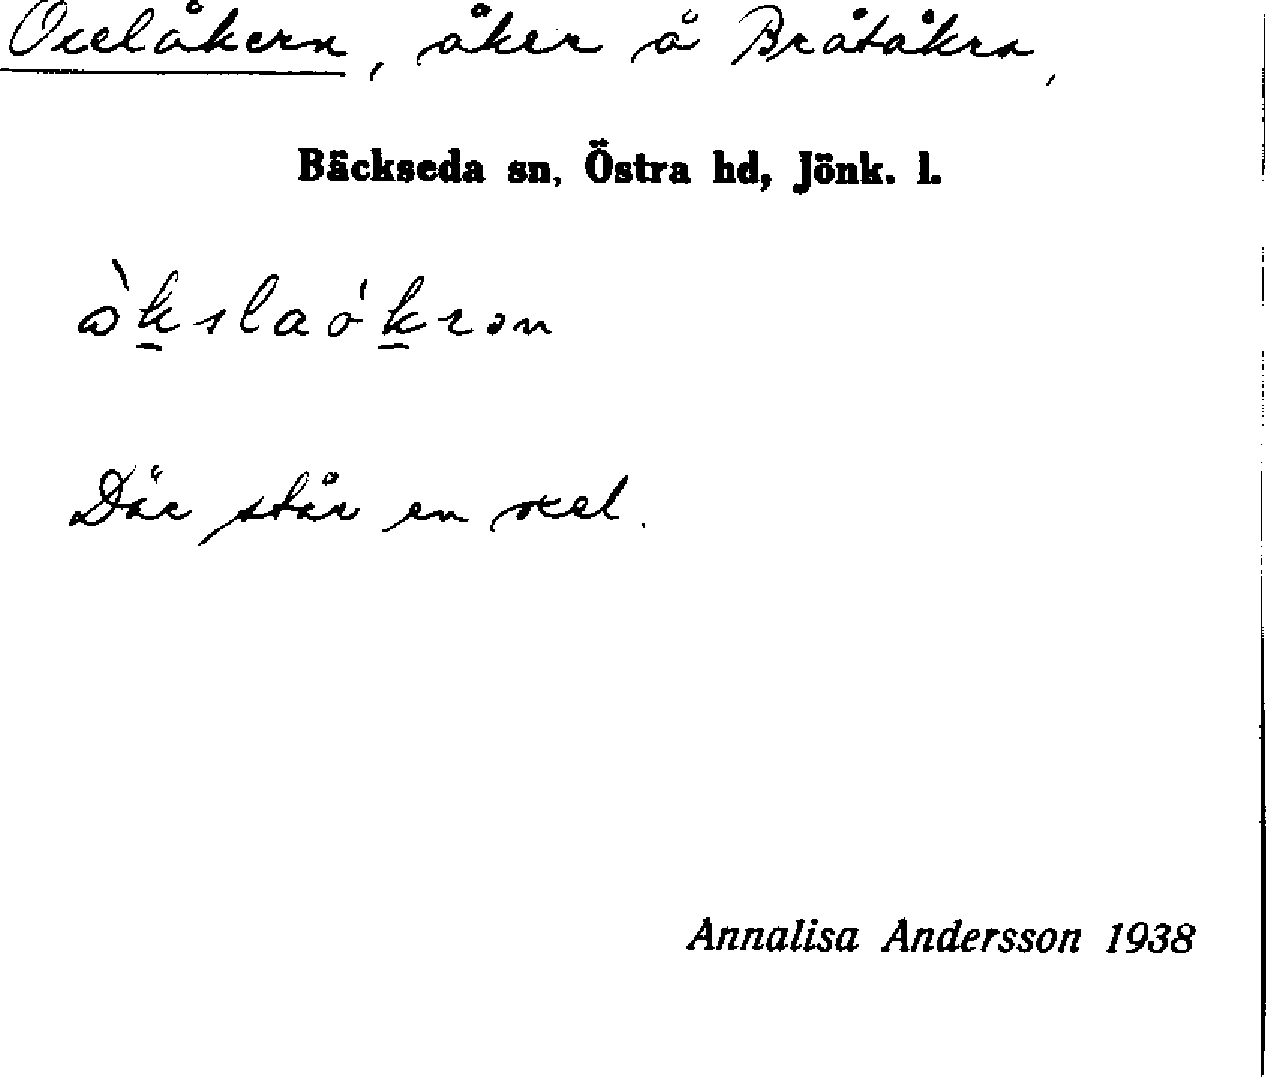 Oxelåkern, åker å Bråtåkra,
Bäckseda sn, Östra hd, Jönk. l.
Där står en oxel.
Annalisa Andersson 1938